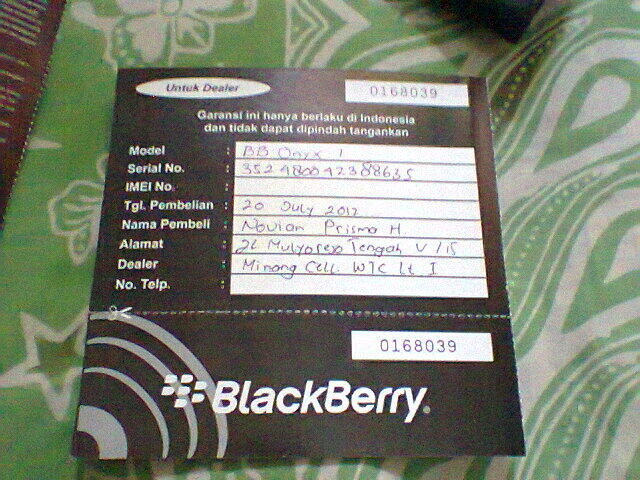 Untuk Dealer
0168039
Garansi ini hanya berlaku di Indonesia
dan tidak dapat dipindah tangankan
Model : BB Onyx 1
Serial No. : 352480042388635
IMEI No. :
Tgl. Pembelian : 20 July 2012
Nama Pembeli : Novian Prisma H
Alamat : JL Mulyorejo Tengah V/15
Dealer : Minang Cell. WTC Lt I
No. Telp. :
0168039
BlackBerry®